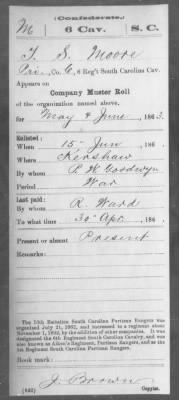 (Confederate.)
M 6 Cav. S. C.
T. S. Moore
Pri, Co. E, 6 Reg't South Carolina Cav.
Appears on
Company Muster Roll
of the organization named above,
for May & June, 1863.
Enlisted:
When 15 Jun, 186
Where Kershaw
By whom P. W. Goodwyn
Period War
Last paid:
By whom R. Ward
To what time 30 Apr, 186
Present or absent Present
Remarks:
The 16th Battalion South Carolina Partisan Rangers was
organized July 21, 1862, and increased to a regiment about
November 1, 1862, by the assignment of companies to it. It was
designated the 6th Regiment South Carolina Cavalry, and was
also known as Aiken's Regiment, Partisan Rangers, and as the
1st Regiment South Carolina Partisan Rangers.
Book mark:
J. Brown
(642) Copyist.